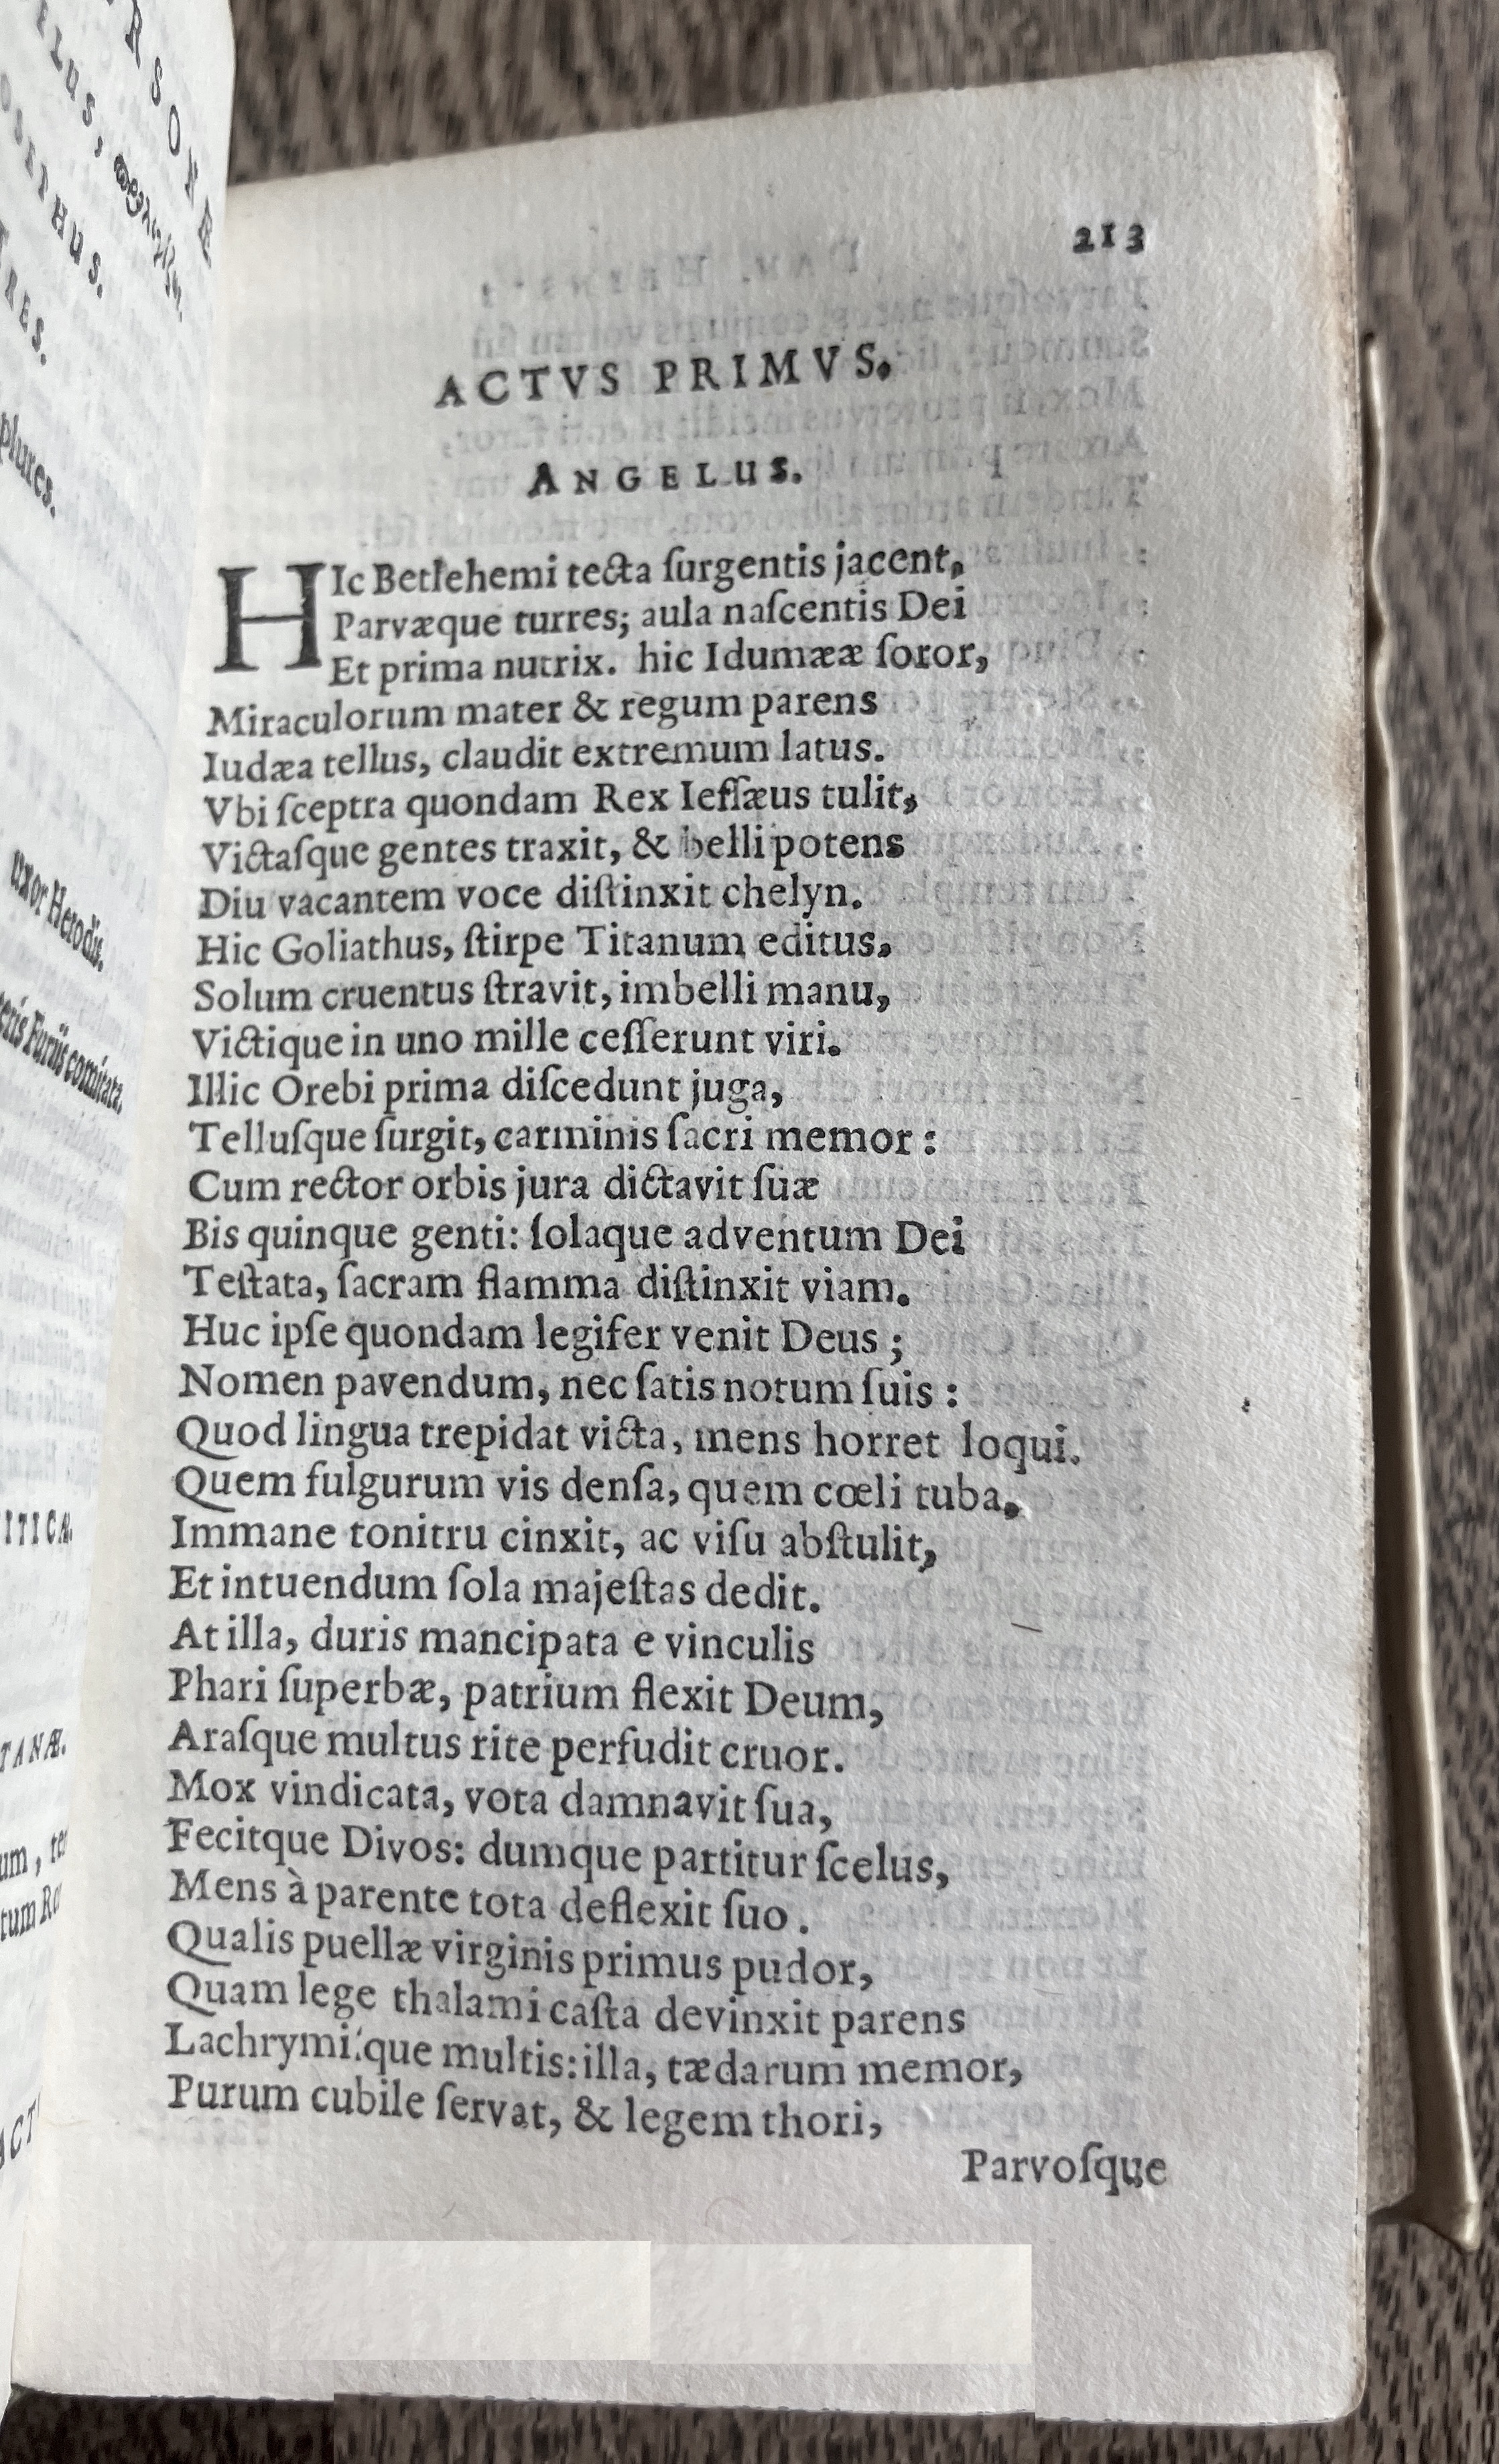 RSONÆ
plures.
uxor Herodis.
Furiis comitata.
213
ACTVS PRIMVS.
ANGELUS.
HIc Betlehemi tecta ſurgentis jacent,
Parvæque turres; aula naſcentis Dei
Et prima nutrix. hic Idumææ ſoror,
Miraculorum mater & regum parens
Iudæa tellus, claudit extremum latus.
Vbi ſceptra quondam Rex Ieſſæus tulit,
Victaſque gentes traxit, & belli potens
Diu vacantem voce diſtinxit chelyn.
Hic Goliathus, ſtirpe Titanum editus,
Solum cruentus ſtravit, imbelli manu,
Victique in uno mille ceſſerunt viri.
Illic Orebi prima diſcedunt juga,
Telluſque ſurgit, carminis ſacri memor:
Cum rector orbis jura dictavit ſuæ
Bis quinque genti: ſolaque adventum Dei
Teſtata, ſacram flamma diſtinxit viam.
Huc ipſe quondam legifer venit Deus;
Nomen pavendum, nec ſatis notum ſuis:
Quod lingua trepidat victa, mens horret loqui.
Quem fulgurum vis denſa, quem cœli tuba,
Immane tonitru cinxit, ac viſu abſtulit,
Et intuendum ſola majeſtas dedit.
At illa, duris mancipata e vinculis
Phari ſuperbæ, patrium flexit Deum,
Araſque multus rite perfudit cruor.
Mox vindicata, vota damnavit ſua,
Fecitque Divos: dumque partitur ſcelus,
Mens à parente tota deflexit ſuo.
Qualis puellæ virginis primus pudor,
Quam lege thalami caſta devinxit parens
Lachrymiſque multis: illa, tædarum memor,
Purum cubile ſervat, & legem thori,
Parvoſque